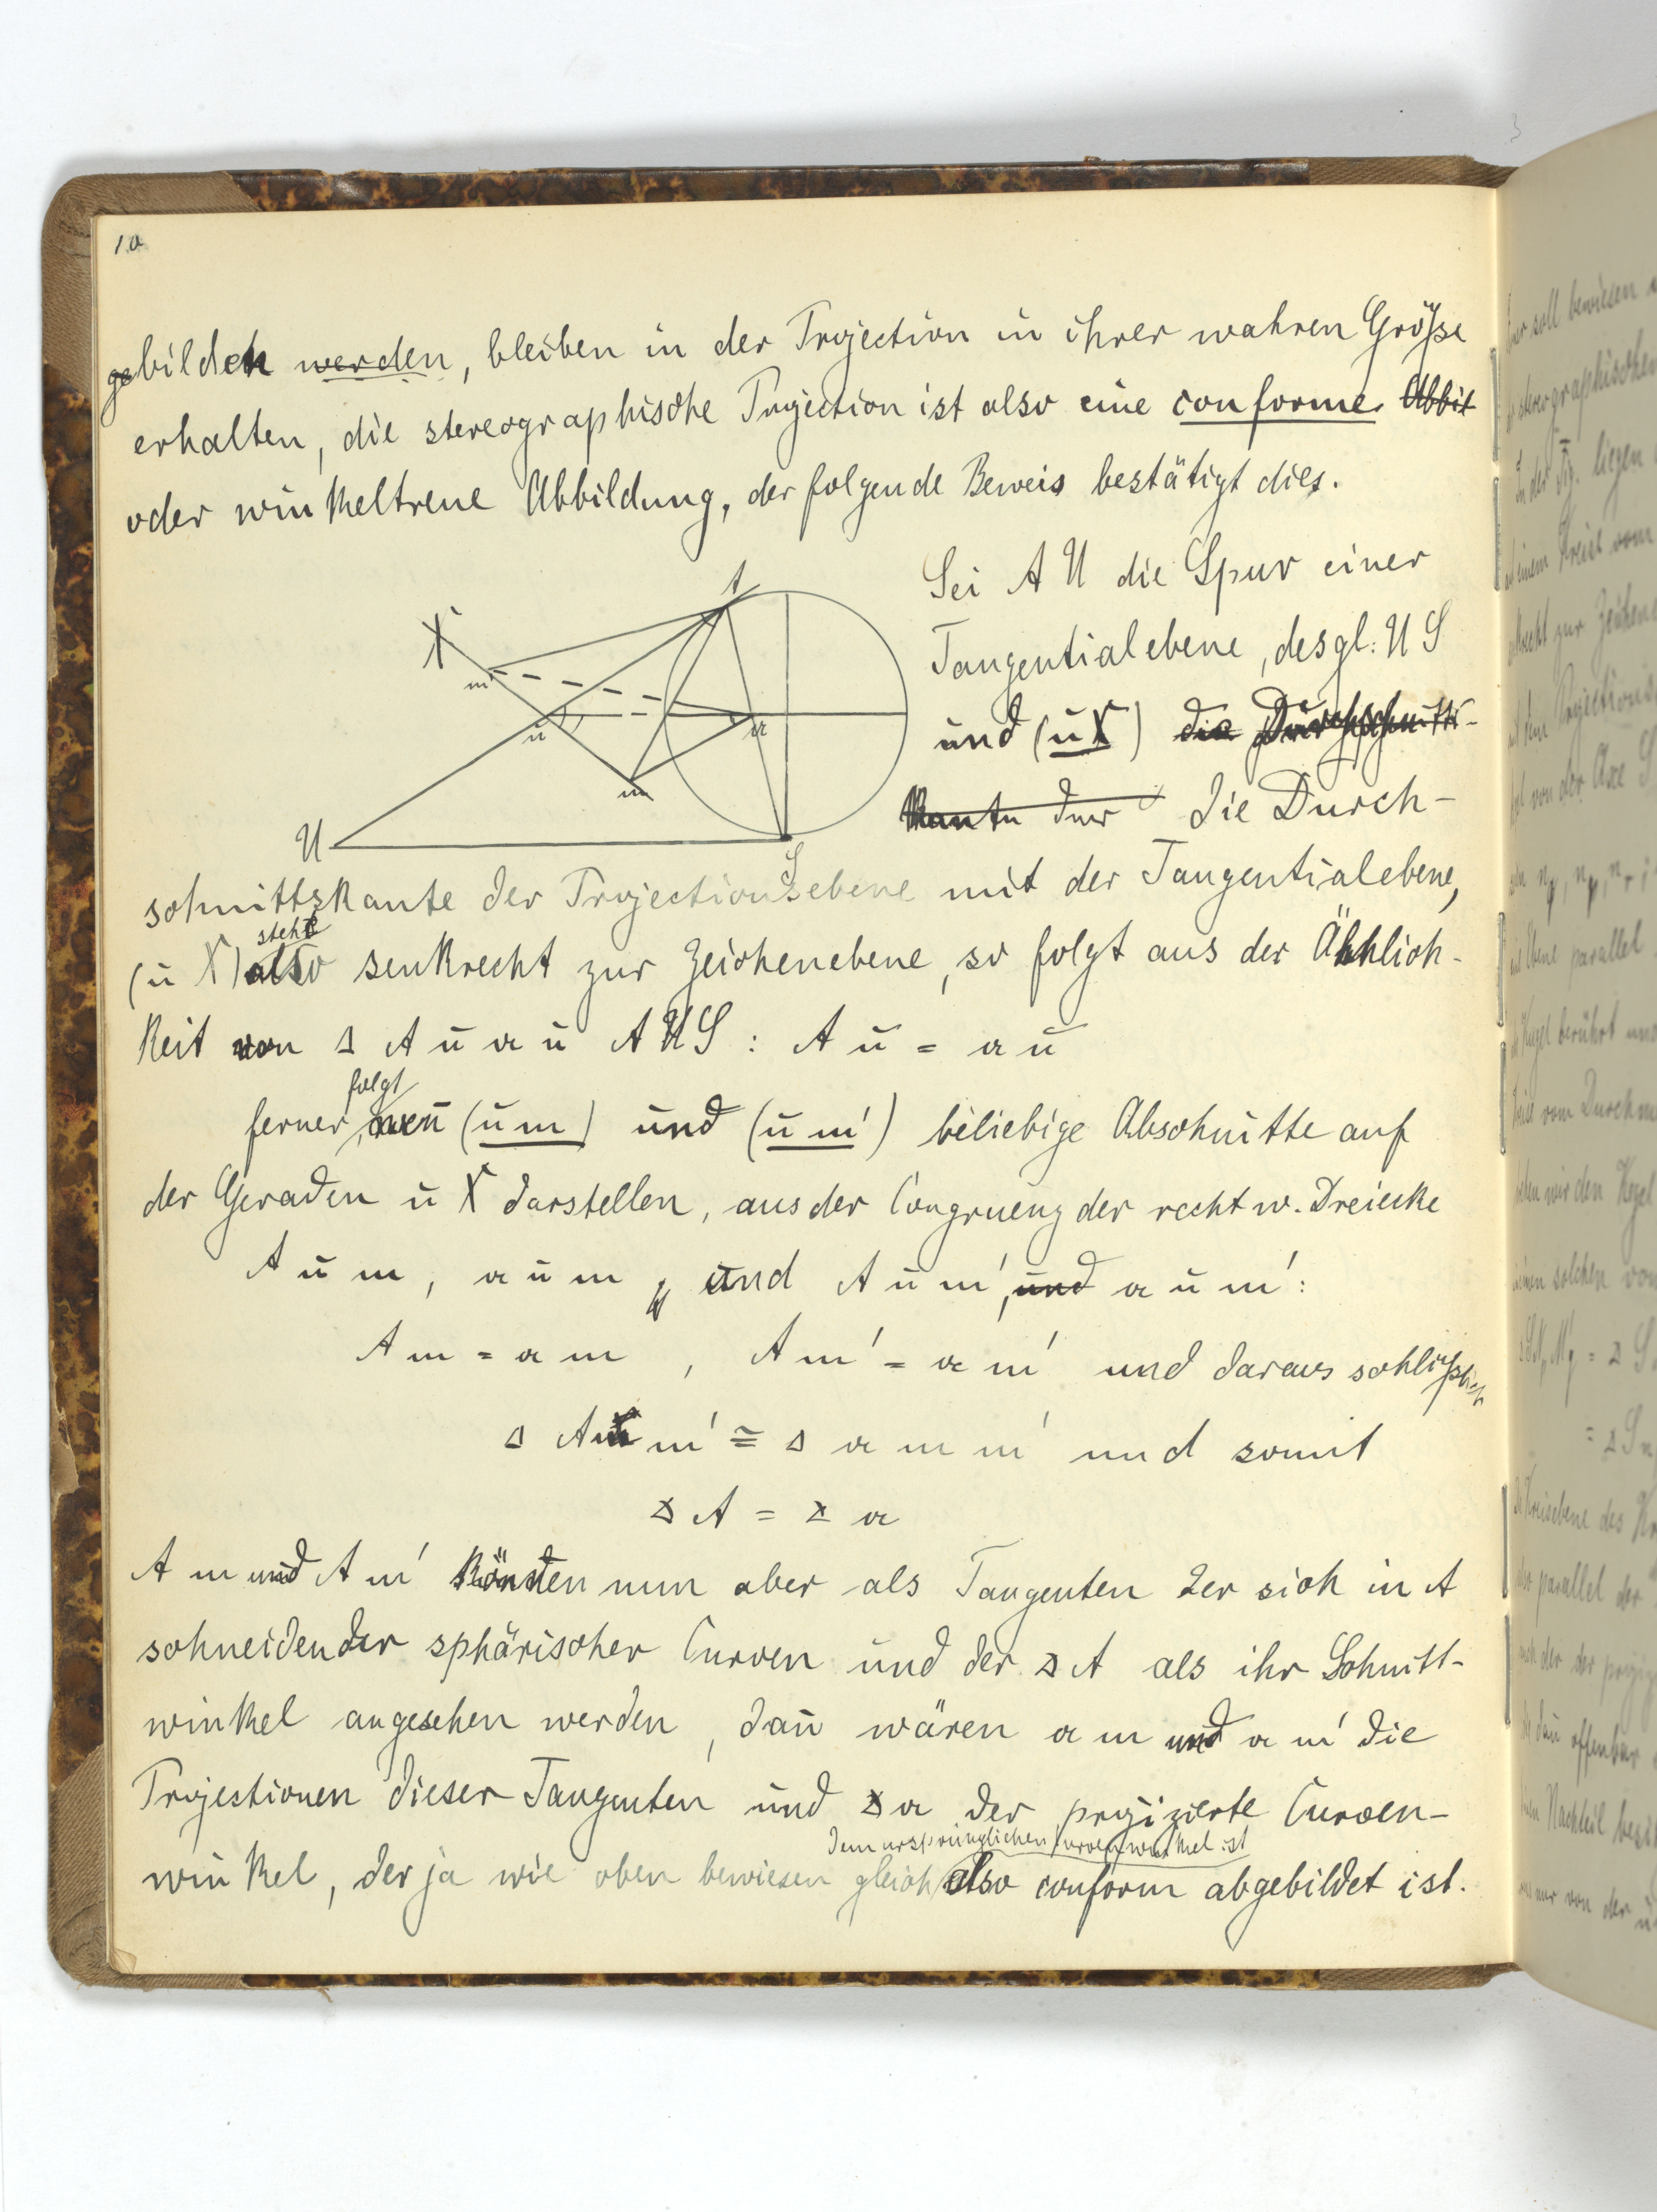 10
gebilden werden, bleiben in der Projection in ihrer wahren Größe
erhalten, die stereographische Projection ist also eine conforme Abbil
oder winkeltreue Abbildung, der folgende Beweis bestätigt dies.
Sei A U die Spur einer
Tangentialebene, desgl. U S
und (ūX) die Durchschnitts-
Kante der die Durch-
A
X
m'
ū
a
m
U
S
schnittskante der Projectionsebene mit der Tangentialebene,
steht
(ū X) also senkrecht zur Zeichenebene, so folgt aus der Ähnlich-
keit von Δ A ū a ū A U S : A ū = a ū
folgt
ferner, wen̄ (ū m) und (ū m') beliebige Abschnitte auf
der Geraden ū X darstellen, aus der Congruenz der rechtw. Dreiecke
A ū m, a ū m und A ū m', und a ū m':
A m = a m , A m' = a m' und daraus schließlich
Δ A m m' ≅ Δ a m m' und somit
∡ A = ∡ a
A m und A m' könnten nun aber als Tangenten 2er sich in A
schneidender sphärischer Curven und der ∡ A als ihr Schnitt-
winkel angesehen werden, dan̄ wären a m und a m' die
Projectionen dieser Tangenten und ∡ a der projizierte Curven-
dem ursprünglichen Curvenwinkel ist
winkel, der ja wie oben bewiesen gleich also conform abgebildet ist.